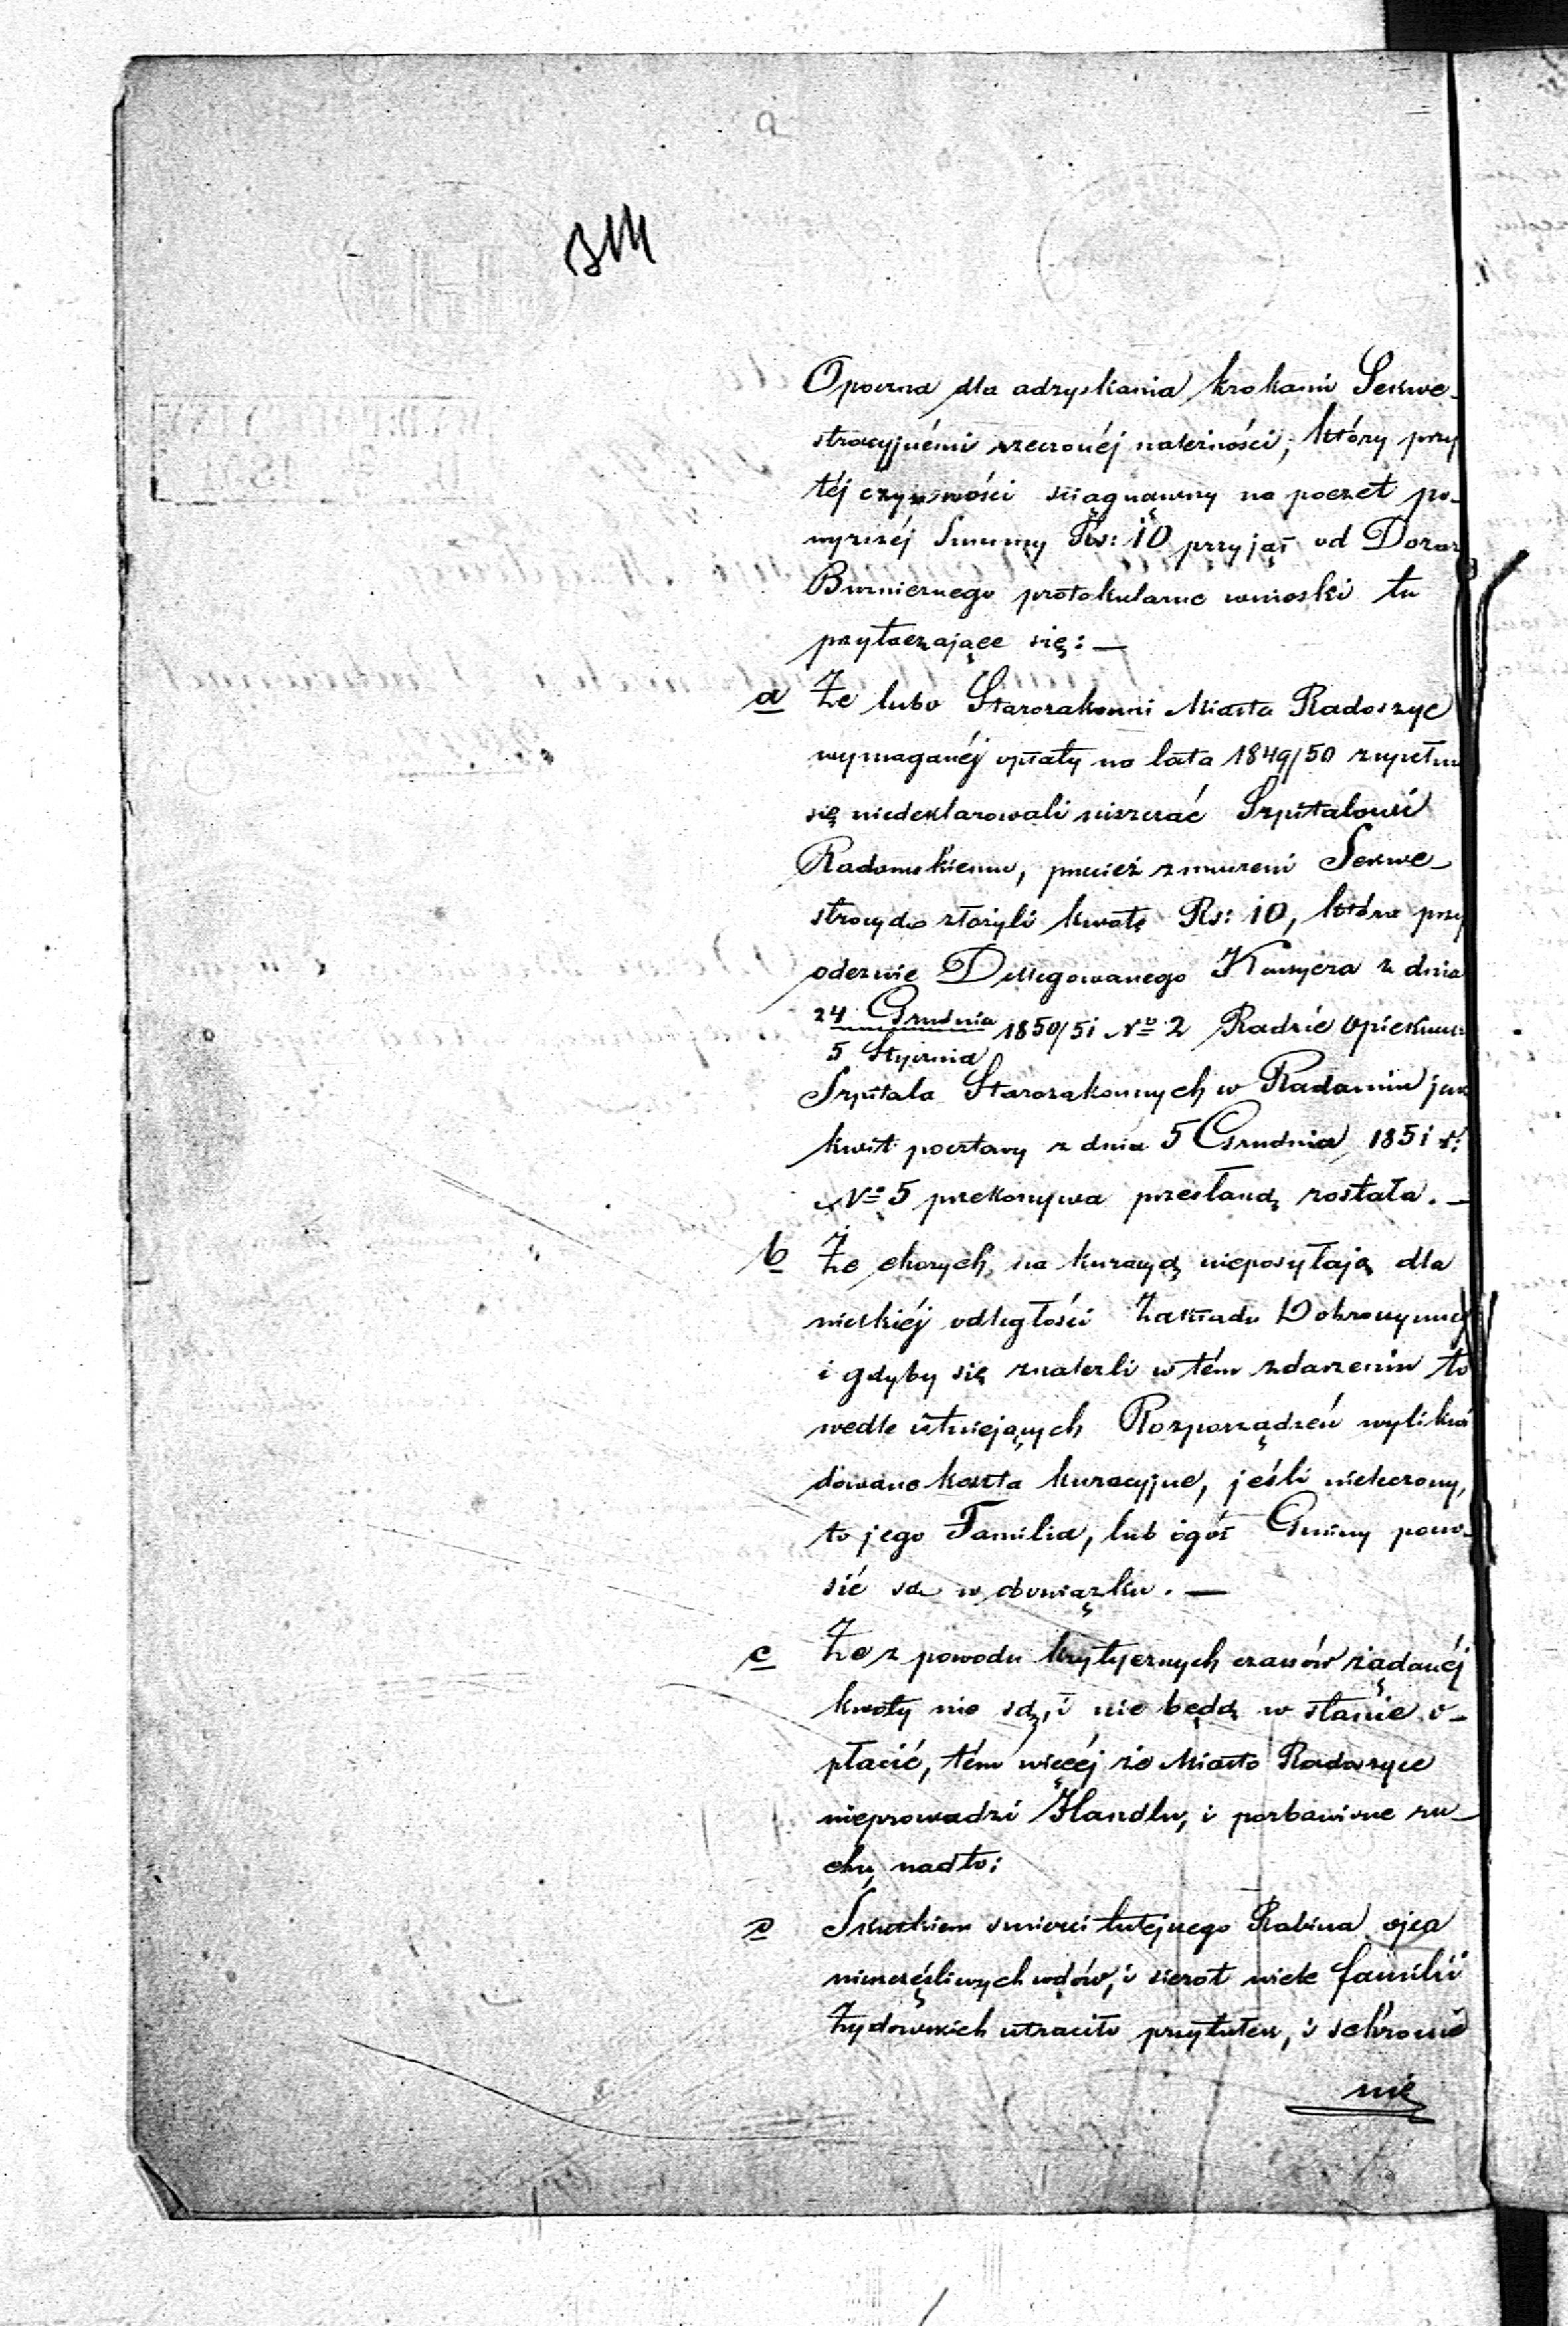 Opoczna dla odzyskania krokami Sekwe-
stracyjnémi rzeczonéj należności; który przy
téj czynności ściągnąwszy na poczet po-
wyższéj Summy Rs: 10 przyjął od Dozor
Bużnicznego protokularne wnioski tu
przytaczające się: —
a Że lubo Starozakonni Miasta Radoszyc
wymaganéj opłaty na lata 1849/50 zupełnie
się niedeklarowali uiszczać Szpitalowi
Radomskiemu, przecież zmuszeni Sekwe-
stracyą złożyli kwotę Rs: 10, która przy
odezwie Delegowanego Kassyera z dnia
24 Grudnia
5 Stycznia 1850/51 No 2 Radzie Opiekuńcz
Szpitala Starozakonnych w Radomiu jak
kwit pocztowy z dnia 5 Grudnia 1851 r:
No 5 przekonywa przesłaną została. —
b Że chorych na kuracyą nieposyłają dla
wielkiéj odległości Zakładu Dobroczynneg
i gdyby się znaleźli w tém zdarzeniu to
wedle istniejących Rozporządzeń wylikwi
dowane koszta kuracyjne, jeśli nieleczony,
to jego Familia, lub ogół Gminy pono-
sić są w obowiązku. —
c Że z powodu krytycznych czasów żądanéj
kwoty nie są, i nie będą w stanie o-
płacić, tém więcéj że Miasto Radoszyce
nieprowadzi Handlu, i pozbawione ru-
chu, nadto:
Skutkiem śmierci tutejszego Rabina ojca
nieszczęśliwych wdów, i sierot wiele familii
Żydowskich utraciło przytułek, i schronie
nie